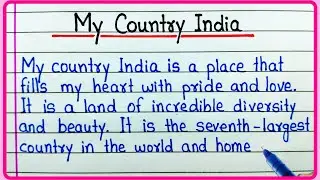 My Country India
My country India is a place that
fills my heart with pride and love.
It is a land of incredible diversity
and beauty. It is the seventh-largest
country in the world and home